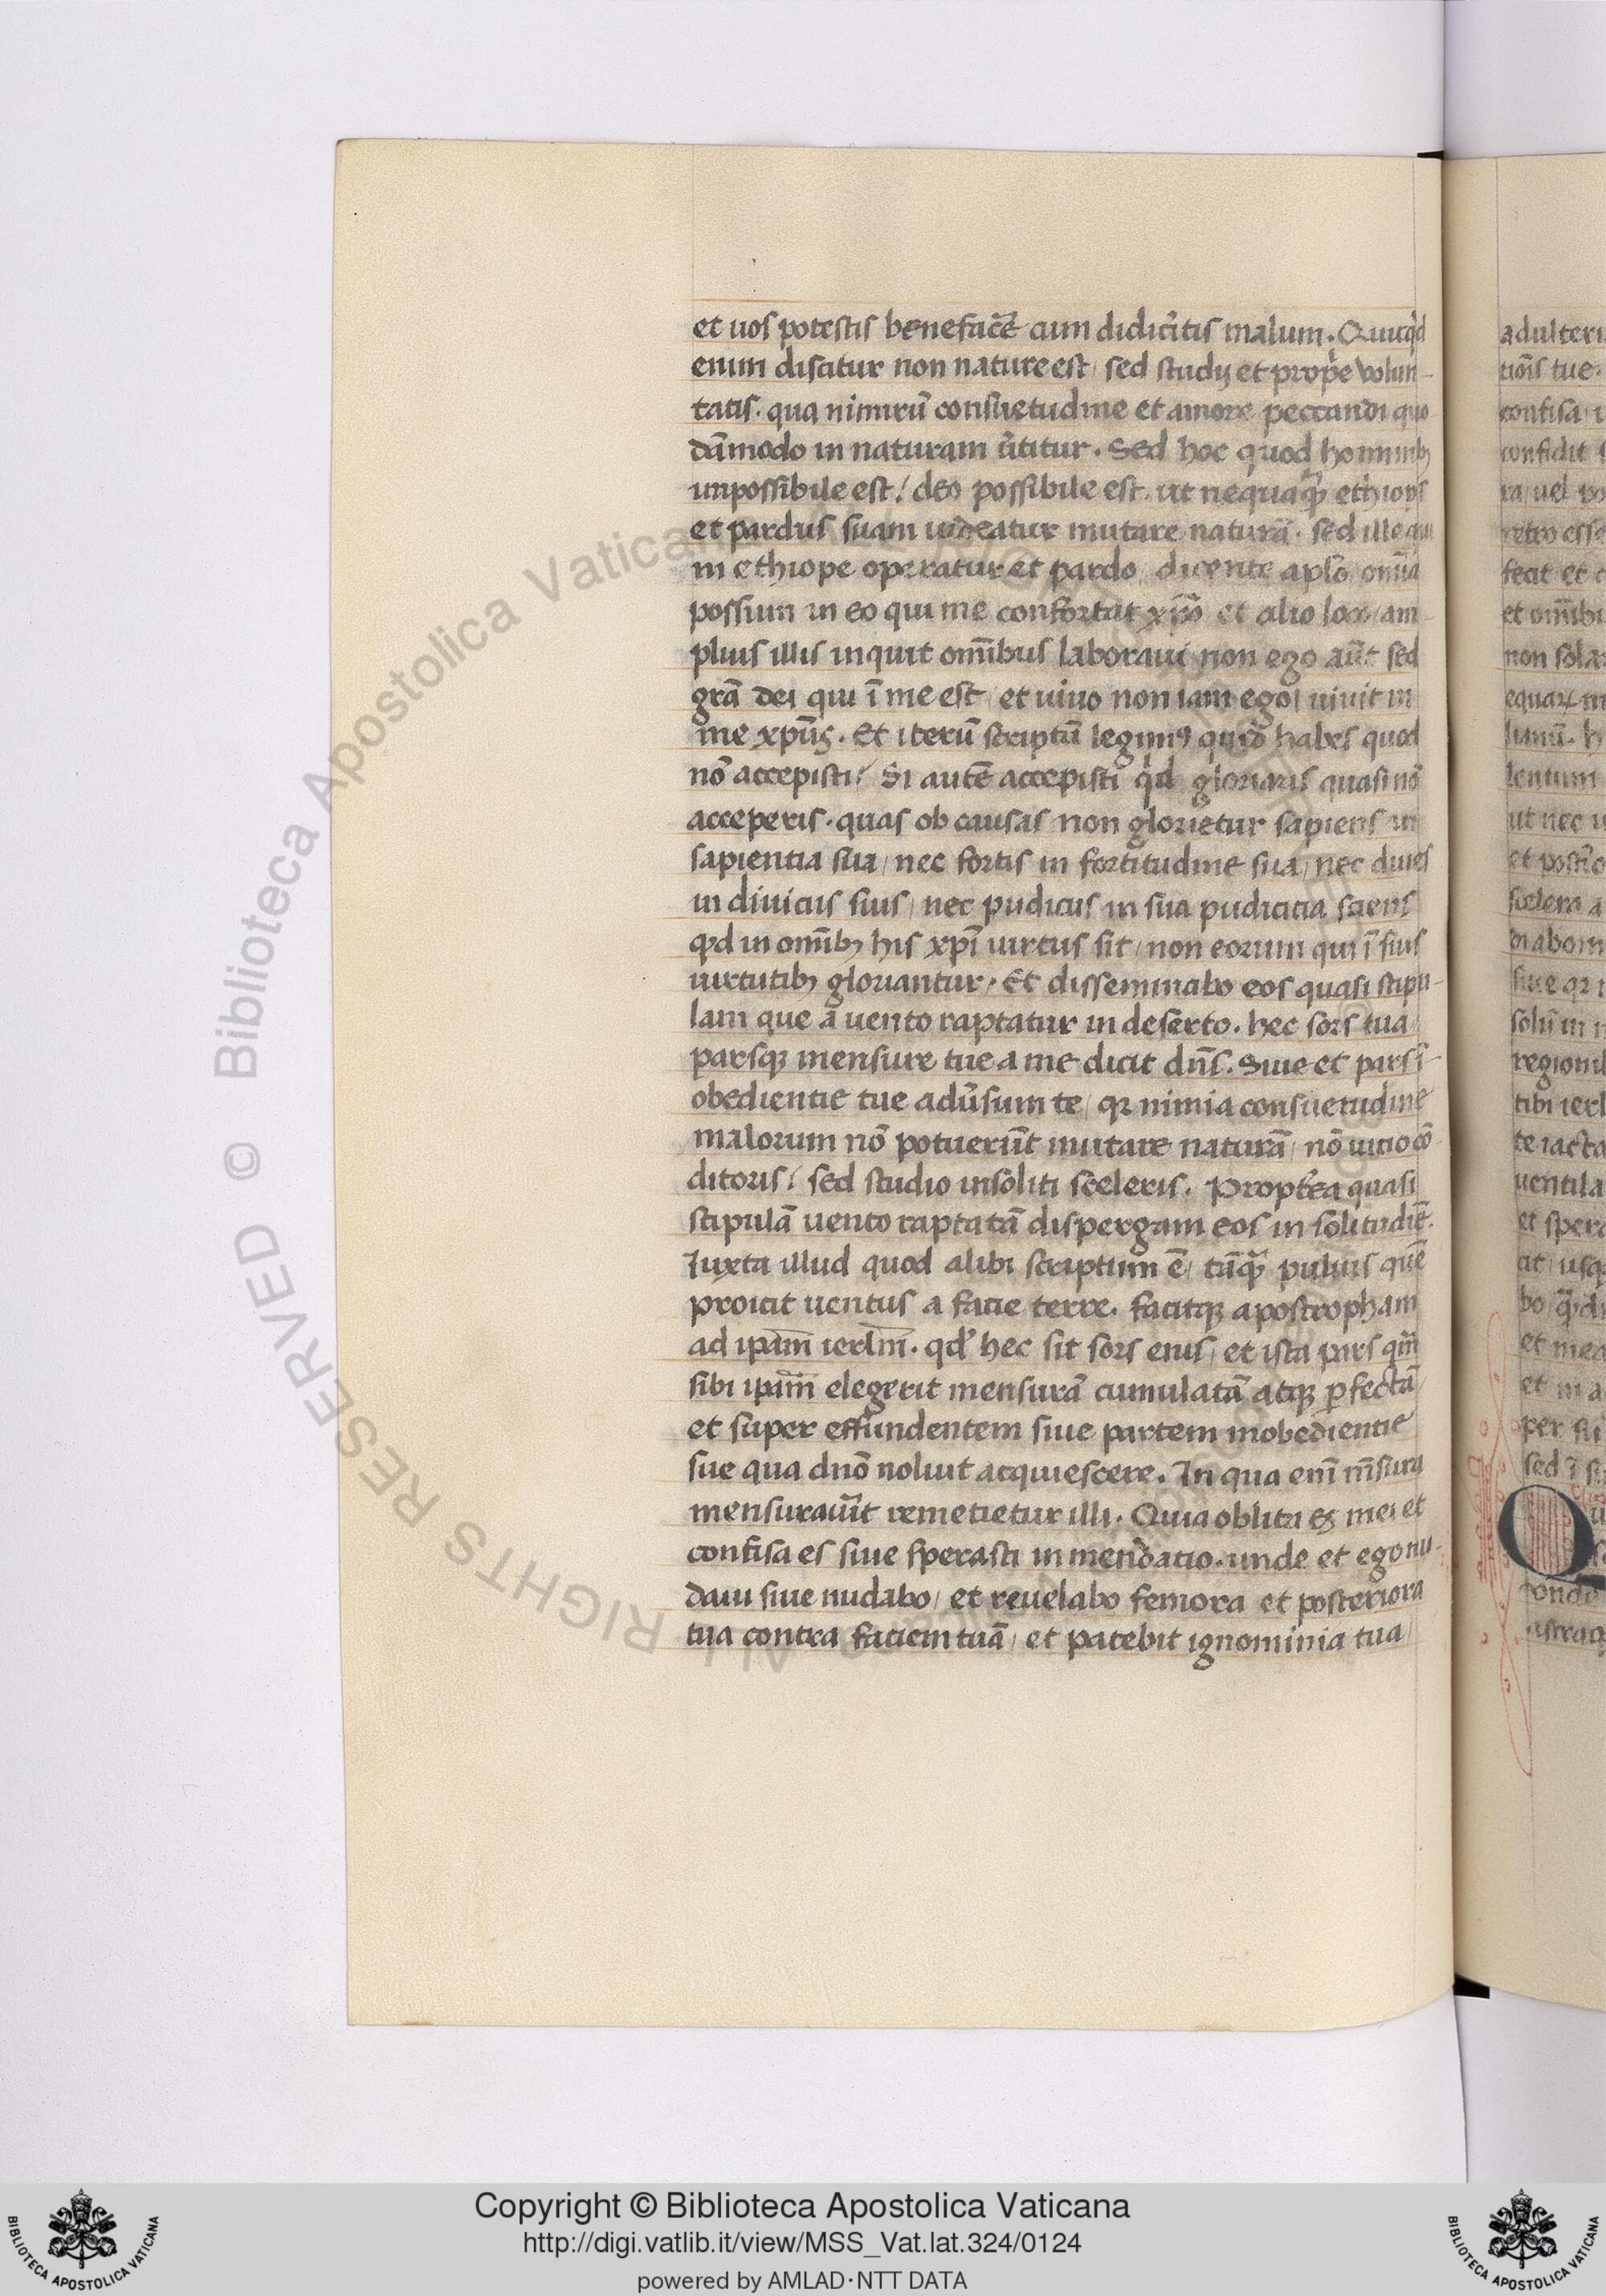 et uos potestis benefacē cum didicītis malum. Quicqd
enim discitur non nature est / sed studij et prop̄e volun-
tatis. qua nimirū consuetudine et amore peccandi quo
dāmodo in naturam v̄titur. Sed hoc quod hominib;
impossibile est / deo possibile est. ut nequaq̄ ethiops
et pardus suam uideatur mutare naturā. sed ille qui
in ethiope operatur et pardo / dicente aplo omīa
possum in eo qui me confortat xpo et alio loco / am-
plius illis inquit omībus laboraui non ego aūt sed
grā dei qui ī me est / et uiuo non iam ego / uiuit in
me xpūs. Et iterū scriptū legim9 quid habes quod
nō accepisti / Si autē accepisti qd gloriaris quasi nō
acceperis. quas ob causas non glorietur sapiens in
sapientia sua / nec fortis in fortitudine sua / nec diues
in diuicius suis / nec pudicus in sua pudicicia sciens
qd in omīb; his xpī uirtus sit / non eorum qui ī suis
uirtutib; gloriantur. Et disseminabo eos quasi stipu-
lam que a uento raptatur in deserto. hec sors tua /
parsq; mensure tue a me dicit dn̄s. Siue et pars ī-
obedientie tue adūsum te / qr nimia consuetudine
malorum nō potuerūt mutare naturā / nō uitio cō
ditoris / sed studio insoliti sceleris. Propt̄ea quasi
stipulā uento raptatā dispergam eos in solitudīe.
Iuxta illud quod alibi scriptum ē / tāq̄ puluis quē
proicit uentus a facie terre. facitq; apostropham
ad ipam̄ ierlm̄. qd hec sit sors eius / et ista pars qm̄
sibi ipam̄ elegerit mensurā cumulatā atq; pfectā /
et super effundentem siue partem inobedientie
sue qua dnō noluit acquiescere. In qua enī m̄sura
mensurauīt remetietur illi. Quia oblita es mei et
confisa es siue sperasti in mendatio. unde et ego nu-
daui siue nudabo / et reuelabo femora et posteriora
tua contra faciem tuā / et patebit ignominia tua /
adulteri
tiōis tue.
confisa
confidit
ra / uel po
retro esse
fecit et
et omību
non sola
lentum
ut nec
et post
scelera a
siue qr
regionib
tibi ierl
te iacta
uentila
et spera
et mea
et in a
per su
sed ī si
Q
© Biblioteca Apostolica Vaticana
ALL RIGHTS RESERVED
Copyright © Biblioteca Apostolica Vaticana
http://digi.vatlib.it/view/MSS_Vat.lat.324/0124
powered by AMLAD·NTT DATA
BIBLIOTECA APOSTOLICA VATICANA
BIBLIOTECA APOSTOLICA VATICANA